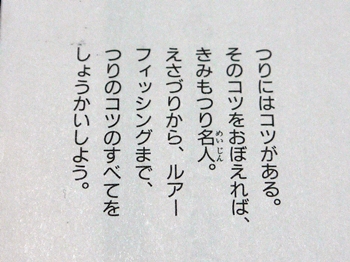 つりにはコツがある。
そのコツをおぼえれば、
きみもつり名人。
えさづりから、ルアー
フィッシングまで、
つりのコツのすべてを
しょうかいしよう。
めいじん